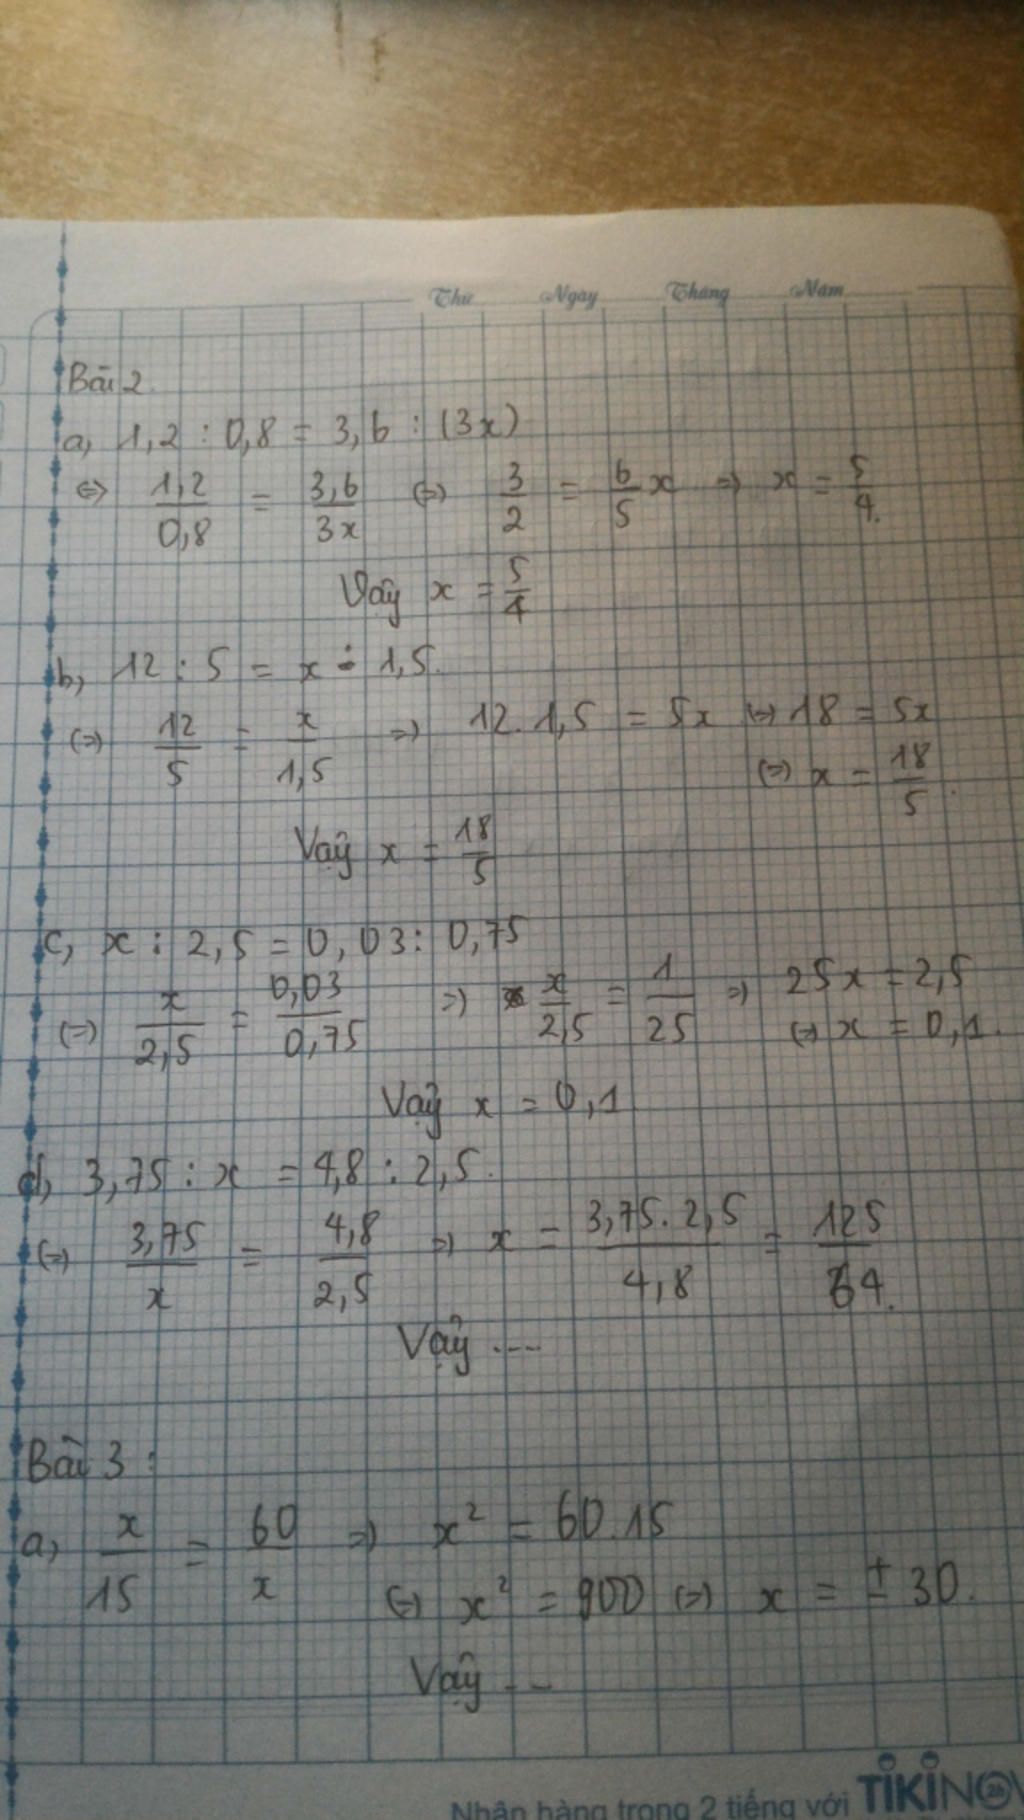 Thứ Ngày Tháng Năm
Bài 2
a, 1,2 : 0,8 = 3,6 : (3x)
<=> 1,2/0,8 = 3,6/3x <=> 3/2 = 6/5 x => x = 5/4.
Vậy x = 5/4
b, 12 : 5 = x : 1,5.
<=> 12/5 = x/1,5 => 12.1,5 = 5x <=> 18 = 5x
<=> x = 18/5.
Vậy x = 18/5
c, x : 2,5 = 0,03 : 0,75
<=> x/2,5 = 0,03/0,75 => x/2,5 = 1/25 => 25x = 2,5
<=> x = 0,1.
Vậy x = 0,1
d, 3,75 : x = 4,8 : 2,5.
<=> 3,75/x = 4,8/2,5 => x = 3,75.2,5/4,8 = 125/64.
Vậy ---
Bài 3 :
a, x/15 = 60/x => x² = 60.15
<=> x² = 900 <=> x = ± 30.
Vậy --
Nhận hàng trong 2 tiếng với TIKINOW